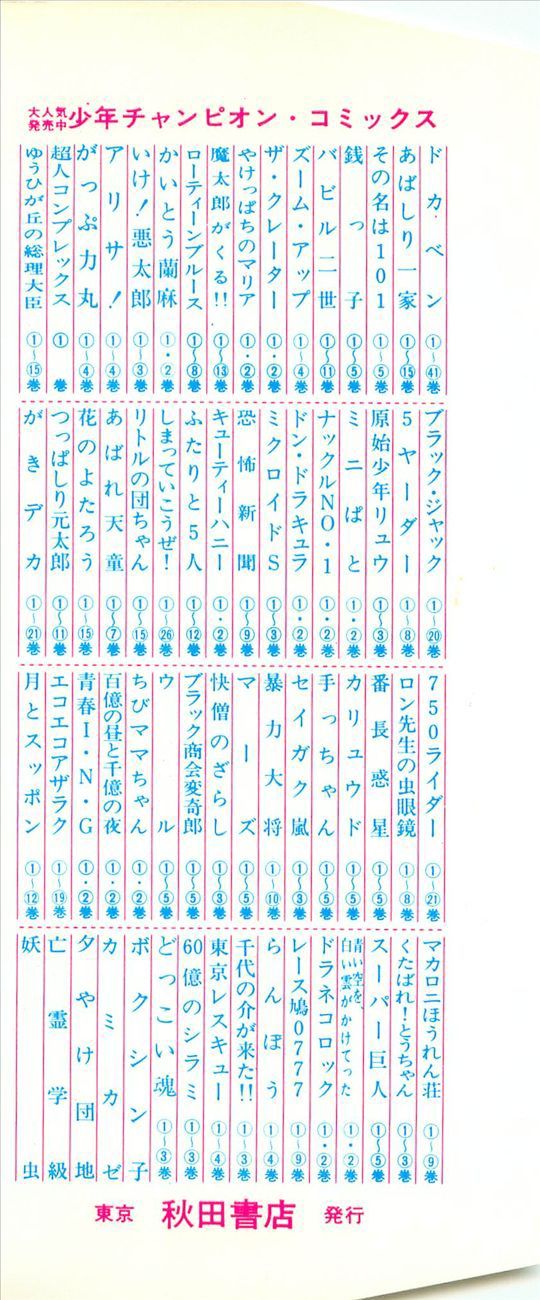 大人気発売中 少年チャンピオン・コミックス
ドカベン ①〜㊶巻
あばしり一家 ①〜⑮巻
その名は101 ①〜⑤巻
銭っ子 ①〜⑤巻
バビル二世 ①〜⑪巻
ズーム・アップ ①〜④巻
ザ・クレーター ①・②巻
やけっぱちのマリア ①・②巻
魔太郎がくる!! ①〜⑬巻
ローティーンブルース ①〜⑧巻
かいとう蘭麻 ①・②巻
いけ!悪太郎 ①〜③巻
アリサ! ①〜④巻
がっぷ力丸 ①〜④巻
超人コンプレックス ①巻
ゆうひが丘の総理大臣 ①〜⑮巻
ブラック・ジャック ①〜⑳巻
5ヤーダー ①〜⑧巻
原始少年リュウ ①〜③巻
ミニぱと ①・②巻
ナックルNO・1 ①・②巻
ドン・ドラキュラ ①・②巻
ミクロイドS ①〜③巻
恐怖新聞 ①〜⑨巻
キューティーハニー ①・②巻
ふたりと5人 ①〜⑫巻
しまっていこうぜ! ①〜㉖巻
リトルの団ちゃん ①〜⑮巻
あばれ天童 ①〜⑦巻
花のよたろう ①〜⑮巻
つっぱしり元太郎 ①〜⑪巻
がきデカ ①〜㉑巻
750ライダー ①〜㉑巻
ロン先生の虫眼鏡 ①〜⑧巻
番長惑星 ①〜⑤巻
カリュウド ①〜⑤巻
手っちゃん ①〜⑤巻
セイガク嵐 ①〜③巻
暴力大将 ①〜⑩巻
マーズ ①〜⑤巻
快僧のざらし ①〜③巻
ブラック商会変奇郎 ①〜⑤巻
ウル ①〜⑤巻
ちびママちゃん ①・②巻
百億の昼と千億の夜 ①・②巻
青春I・N・G ①・②巻
エコエコアザラク ①〜⑲巻
月とスッポン ①〜⑫巻
マカロニほうれん荘 ①〜⑨巻
くたばれ!とうちゃん ①〜③巻
スーパー巨人 ①〜⑤巻
青い空を、白い雲がかけてった ①・②巻
ドラネコロック ①・②巻
レース鳩0777 ①〜⑨巻
らんぽう ①〜④巻
千代の介が来た!! ①〜③巻
東京レスキュー ①〜④巻
60億のシラミ ①〜③巻
どっこい魂 ①〜③巻
ボクシン子
カミカゼ
夕やけ団地
亡霊学級
妖虫
東京 秋田書店 発行